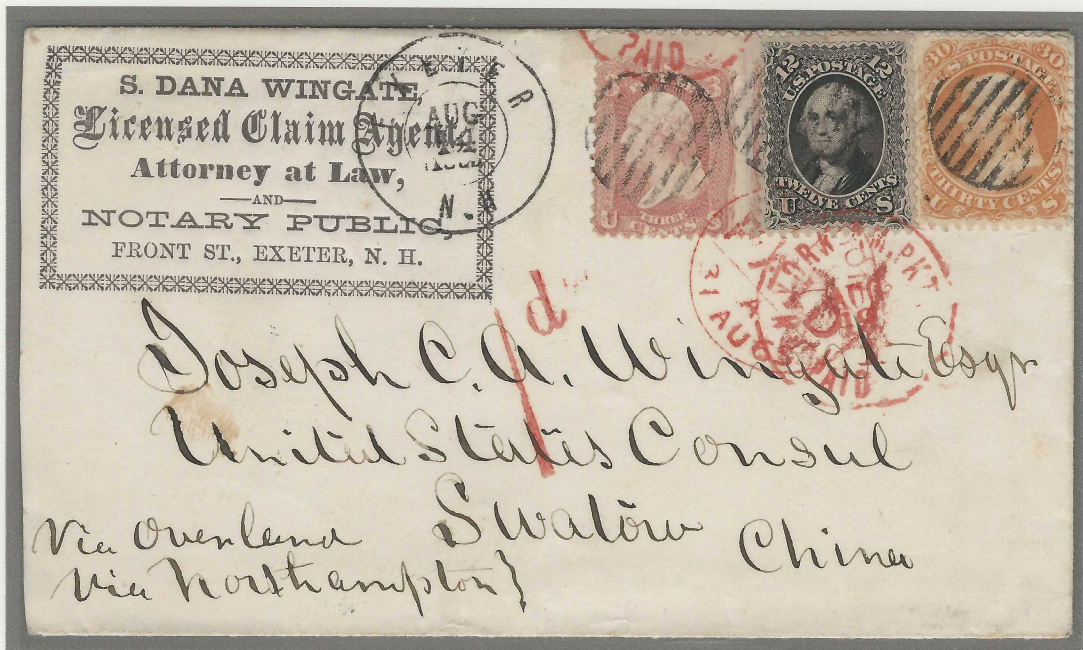 S. DANA WINGATE,
Licensed Claim Agent,
Attorney at Law,
AND
NOTARY PUBLIC,
FRONT ST., EXETER, N. H.
EXETER
AUG
14
N.H
PAID
3
U
THREE
CENTS
12 12
U.S. POSTAGE
TWELVE CENTS
U S
30 30
U.S. POSTAGE
THIRTY CENTS
U S
1d
YORK AM. PKT
31 AUG
PAID
Joseph C. A. Wingate Esqr
United States Consul
Swatow
China
Via Overland
Via Northampton